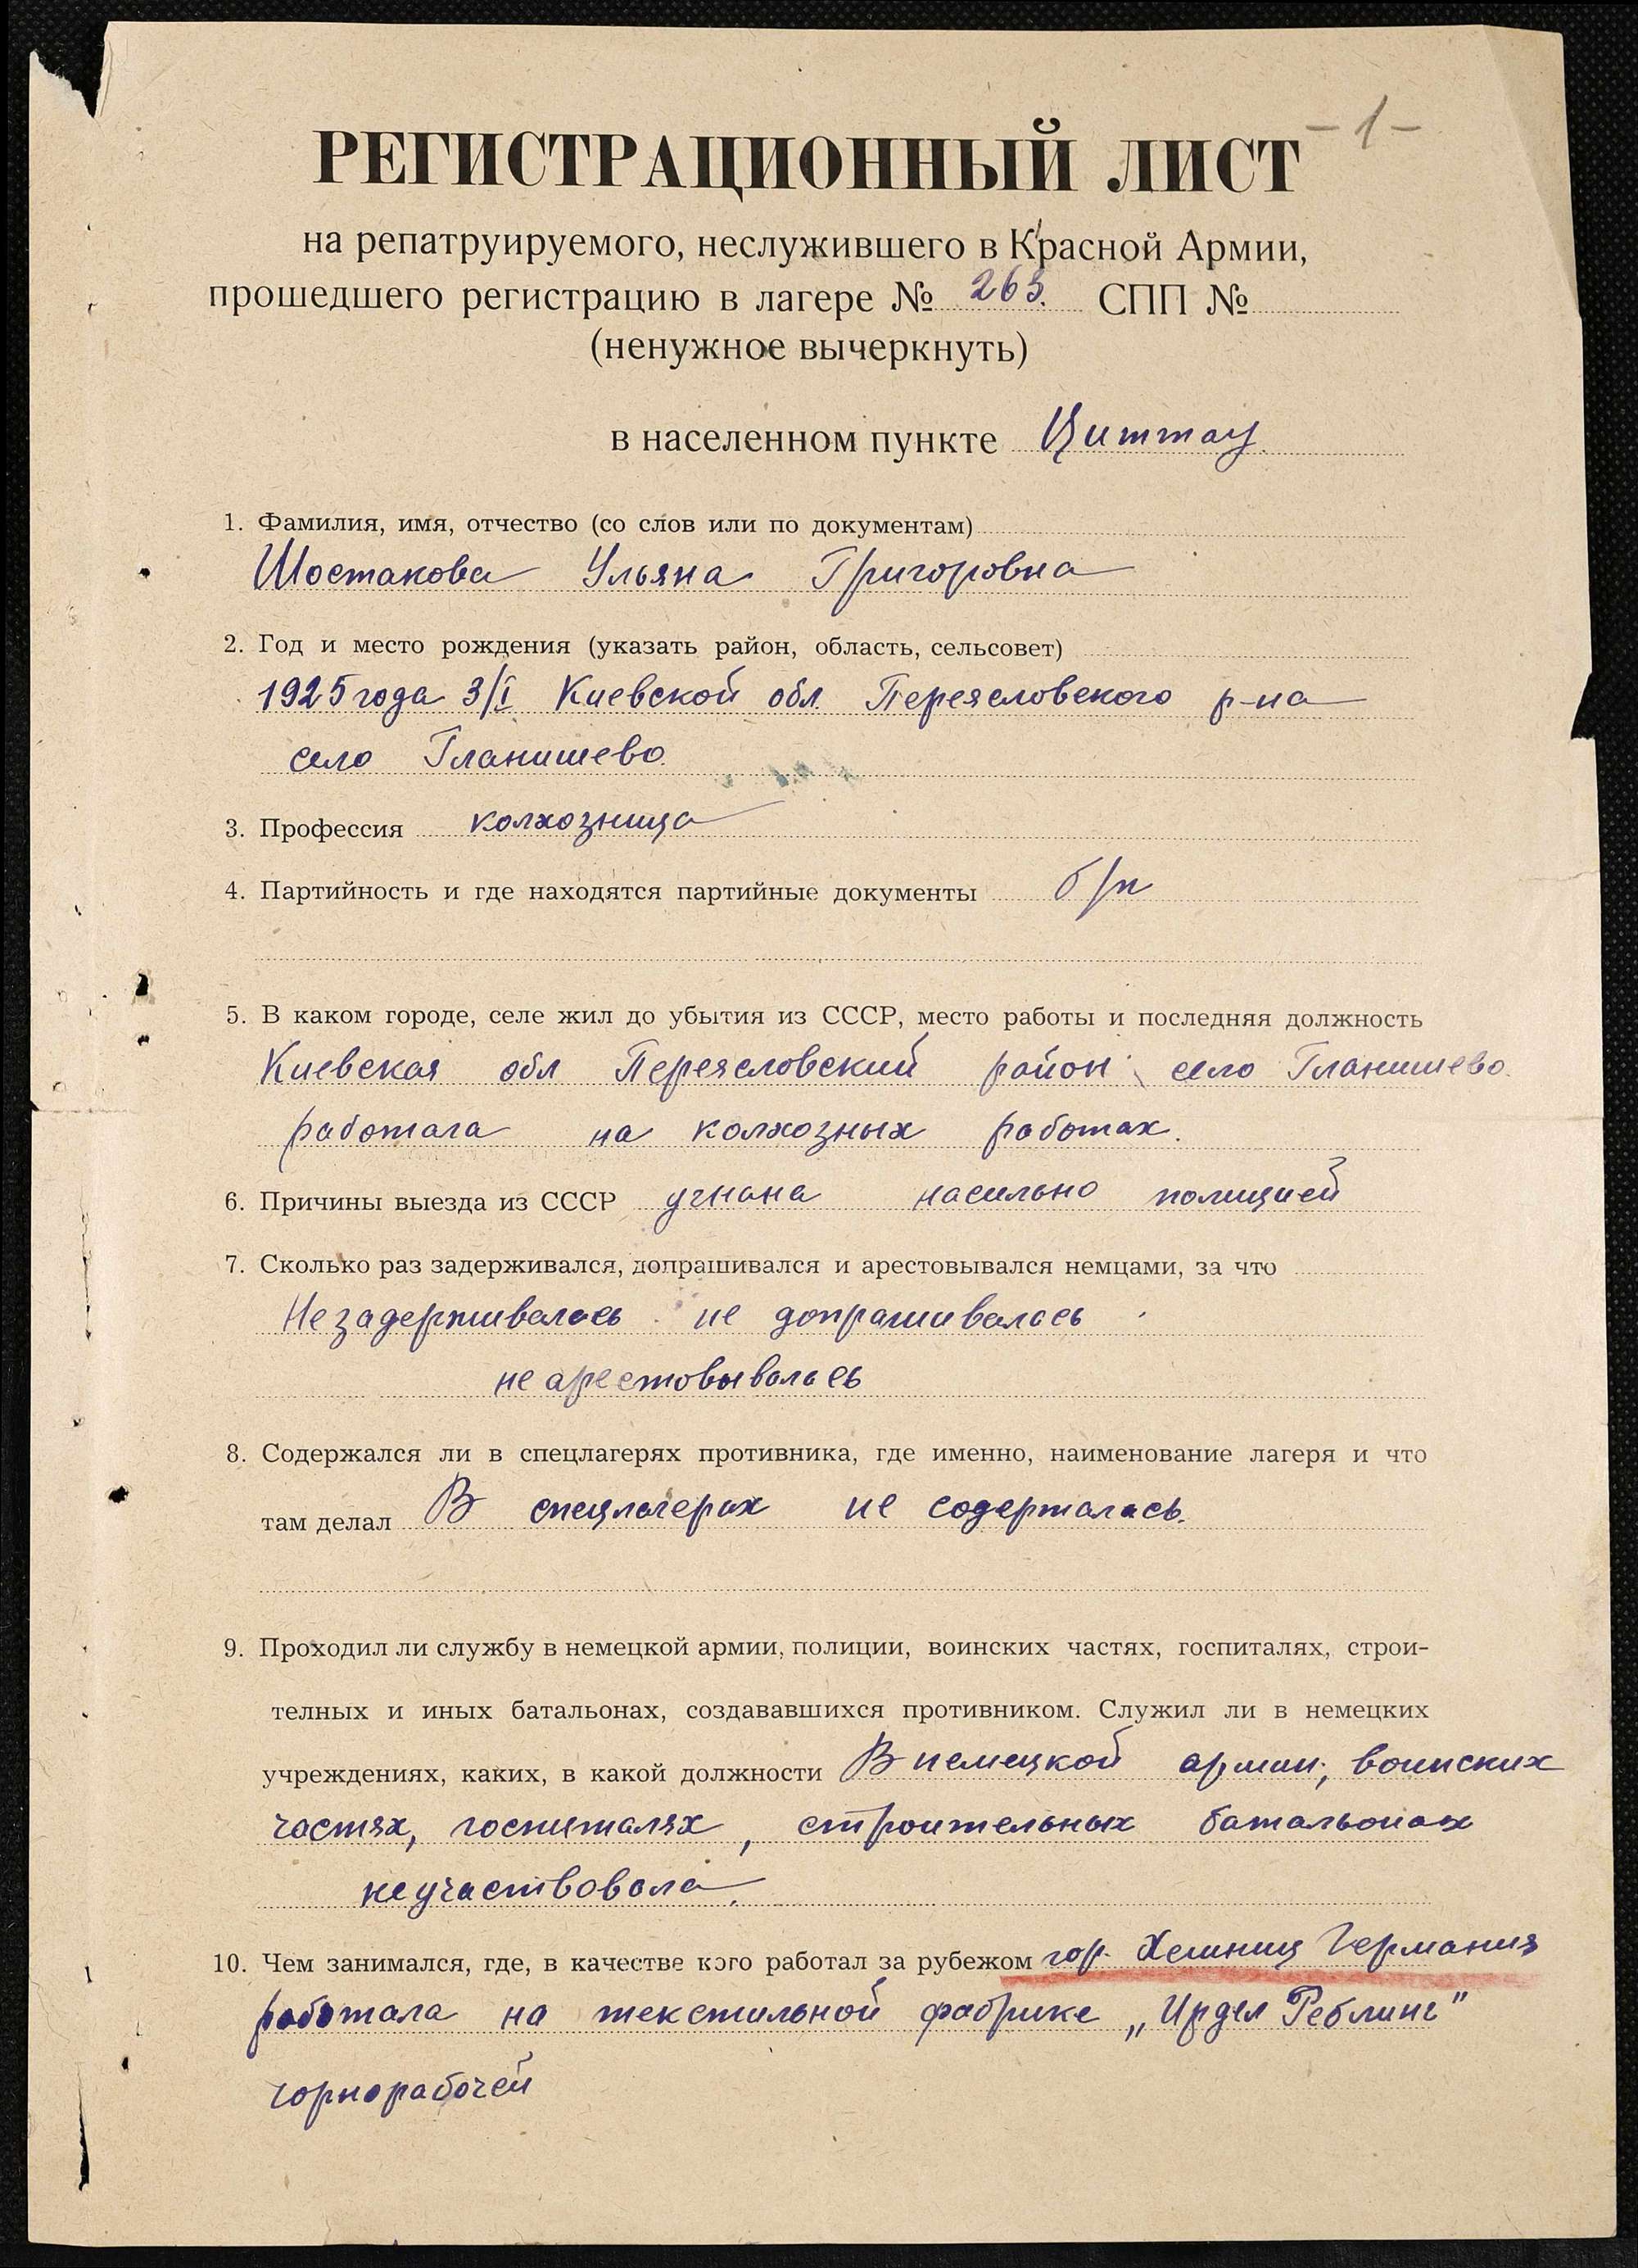 -1-
РЕГИСТРАЦИОННЫЙ ЛИСТ
на репатруируемого, неслужившего в Красной Армии,
прошедшего регистрацию в лагере № 263. СПП №
(ненужное вычеркнуть)
в населенном пункте Циттау.
1. Фамилия, имя, отчество (со слов или по документам)
Шостакова Ульяна Григоровна
2. Год и место рождения (указать район, область, сельсовет)
1925 года 3/I Киевской обл. Переяеловского р-на
село Гланишево.
3. Профессия колхозница
4. Партийность и где находятся партийные документы б/п
5. В каком городе, селе жил до убытия из СССР, место работы и последняя должность
Киевская обл Переясловский район село Гланишево.
работала на колхозных работах.
6. Причины выезда из СССР угнана насильно полицией
7. Сколько раз задерживался, допрашивался и арестовывался немцами, за что
Не задерживалась не допрашивалась
не арестовывалась
8. Содержался ли в спецлагерях противника, где именно, наименование лагеря и что
там делал В спецлагерях не содержалась.
9. Проходил ли службу в немецкой армии, полиции, воинских частях, госпиталях, строи-
телных и иных батальонах, создававшихся противником. Служил ли в немецких
учреждениях, каких, в какой должности В немецкой армии, воинских
частях, госпиталях, строительных батальонах
не участвовала.
10. Чем занимался, где, в качестве кого работал за рубежом гор. Хемниц Германия
работала на текстильной фабрике „Ирдел Реблинг"
чорнорабочей